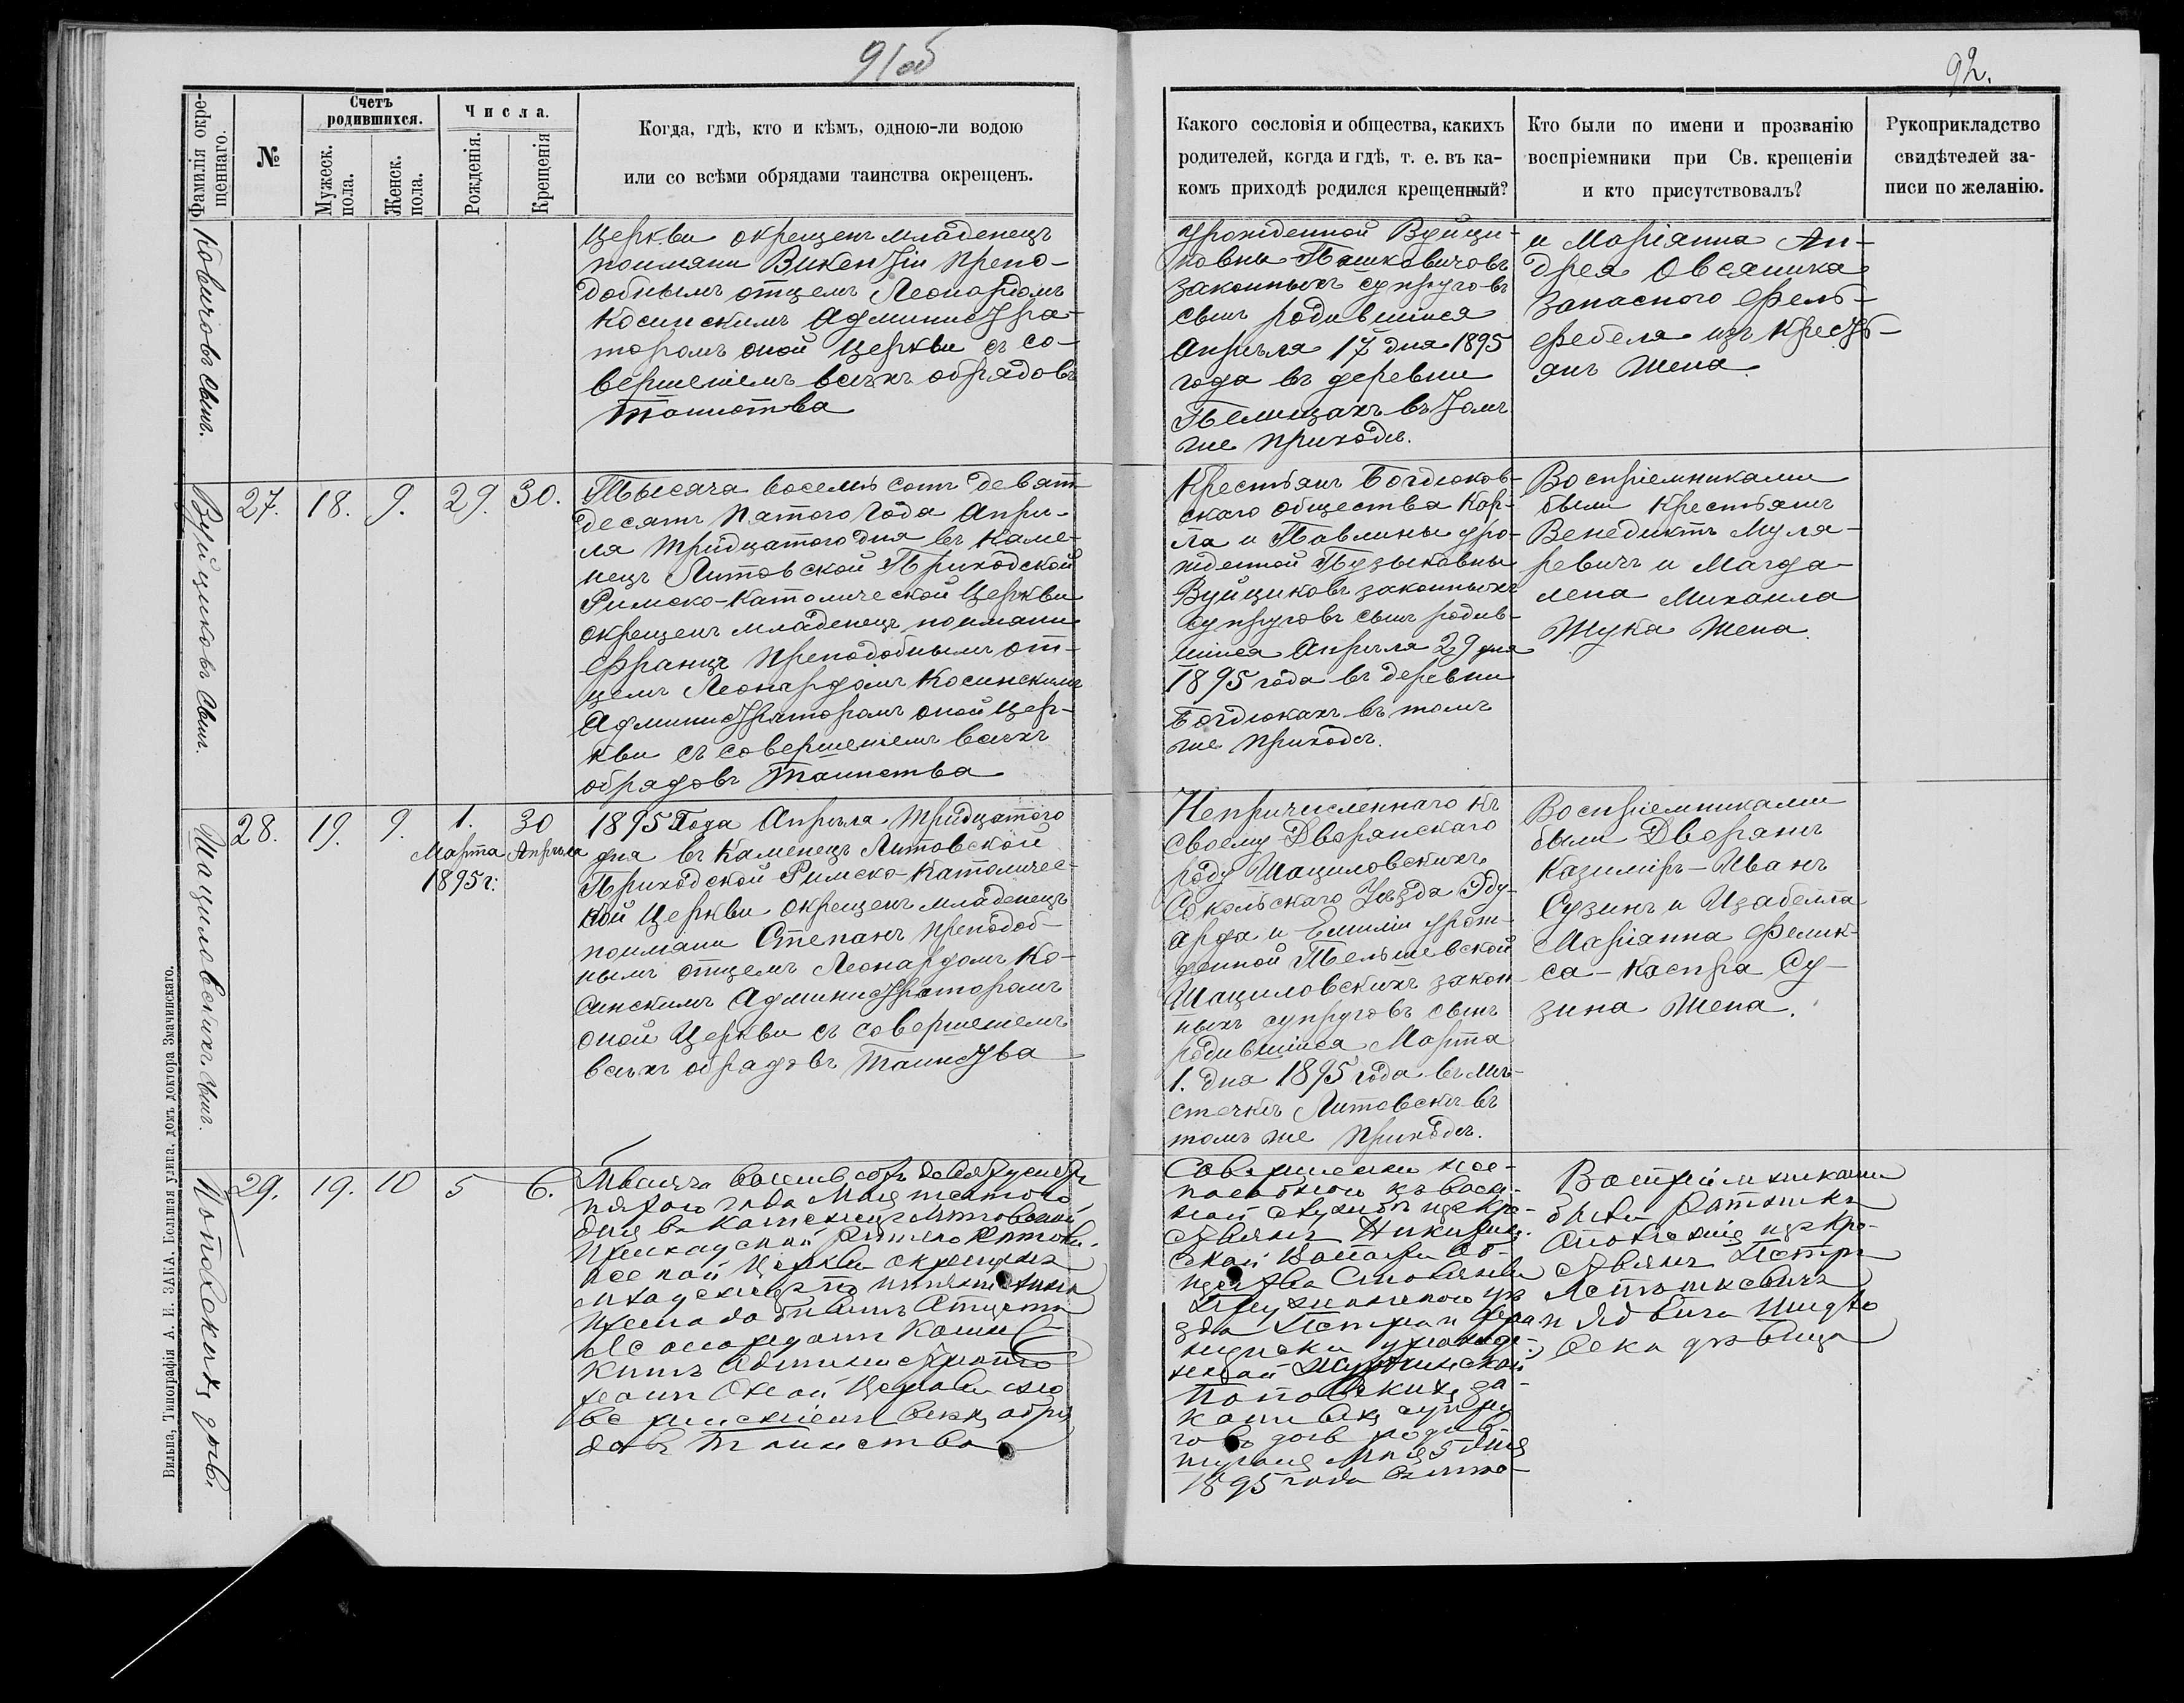 91об
92.
Фамилія окре-
щеннаго.
№
Счетъ
родившихся.
Мужеск.
пола.
Женск.
пола.
Числа.
Рожденія.
Крещенія
Когда, гдѣ, кто и кѣмъ, одною-ли водою
или со всѣми обрядами таинства окрещенъ.
Какого сословія и общества, какихъ
родителей, когда и гдѣ, т. е. въ ка-
комъ приходѣ родился крещенный?
Кто были по имени и прозванію
воспріемники при Св. крещеніи
и кто присутствовалъ?
Рукоприкладство
свидѣтелей за-
писи по желанію.
ковичовъ сынъ.
Церкви окрещенъ младенецъ
поимяни Викентій препо-
добнымъ отцемъ Леонардомъ
Косинскимъ Администра-
торомъ оной Церкви съ со-
вершеніемъ всѣхъ обрядовъ
таинства
урожденной Вуйци-
ковны Пашковичовъ
законныхъ супруговъ
сынъ родившійся
Апрѣля 17 дня 1895
года въ деревни
Пелищахъ въ томъ
же приходѣ.
и Маріянна Ан-
дрея Овсяника
Запаснаго Фельд-
фебеля изъ Кресть-
янъ Жена.
Вуйциковъ сынъ.
27.
18.
9.
29.
30.
Тысяча восемь сотъ девят
десятъ пятого Года Апрѣ-
ля тридцатого дня въ Каме-
нецъ Литовской Приходской
Римско-Католической Церкви
окрещенъ младенецъ поимяни
Францъ преподобнымъ от-
цемъ Леонардомъ Косинскимъ
Администраторомъ оной Цер-
кви съ совершеніемъ всѣхъ
обрядовъ Таинства
Крестьянъ Богдюков-
скаго общества Кар-
ла и Павлины уро-
жденной Пузыковны
Вуйциковъ законныхъ
супруговъ сынъ родив-
шійся Апрѣля 29 дня
1895 года въ деревни
Богдюкахъ въ томъ
же приходѣ.
Воспріемниками
были Крестьянъ
Венедиктъ Муля-
ревичъ и Магда-
лена Михаила
Жука Жена.
Шациловскихъ сынъ.
28.
19.
9.
1.
Марта
1895 г:
30
Апрѣля
1895 Года Апрѣля Тридцатого
дня въ Каменецъ Литовской
Приходской Римско-Католичес-
кой Церкви окрещенъ младенецъ
поимяни Степанъ преподоб-
нымъ отцемъ Леонардомъ Ко-
синскимъ Администраторомъ
оной Церкви съ совершеніемъ
всѣхъ обрядовъ Таинства
Непричисленнаго къ
своему Дворянскаго
роду Шациловскихъ
Сокольскаго Уѣзда Эду-
арда и Емиліи урож-
денной Пельшевской
Шациловскихъ закон-
ныхъ супруговъ сынъ
родившійся Марта
1. дня 1895 года въ мѣ-
стечкѣ Литовскѣ въ
томъ же приходѣ.
Воспріемниками
были Дворянъ
Казиміръ-Иванъ
Сузинъ и Изабелла
Маріанна Фелик-
са-Каспра Су-
зина Жена.
Поповскихъ дочь
29.
19.
10
5
6.
Тысяча восемь сотъ девятдесятъ
пятого года Мая шестого
дня въ Каменецъ Литовской
Приходской Римско Католи-
ческой Церкви окрещенъ
младенецъ по имяни
преподобнымъ Отцемъ
Леонардомъ Косинс
кимъ Администрато
ромъ Оной Церкви съ со
вершеніемъ всѣхъ обря
довъ Таинства
Совершенно не
къ воен-
ной службѣ изъ кре-
стьянъ
Поповскихъ за-
конныхъ супру
говъ дочь родив-
шуюся Мая 5 дня
1895 года
Воспріемниками
были
изъ кре-
стьянъ Петръ
и
дѣвица
Вильна, Типографія А. И. ЗАКА, Большая улица, домъ доктора Змачинскаго.